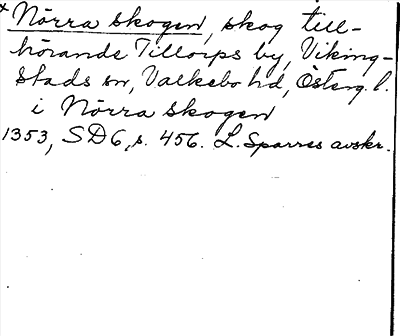 x Nörra skogen, skog till-
hörande Tillorps by, Viking-
stads sn, Valkebo hd, Österg. l.
i Nörra Skogen
1353, SD6, s. 456. L. Sparres avskr.